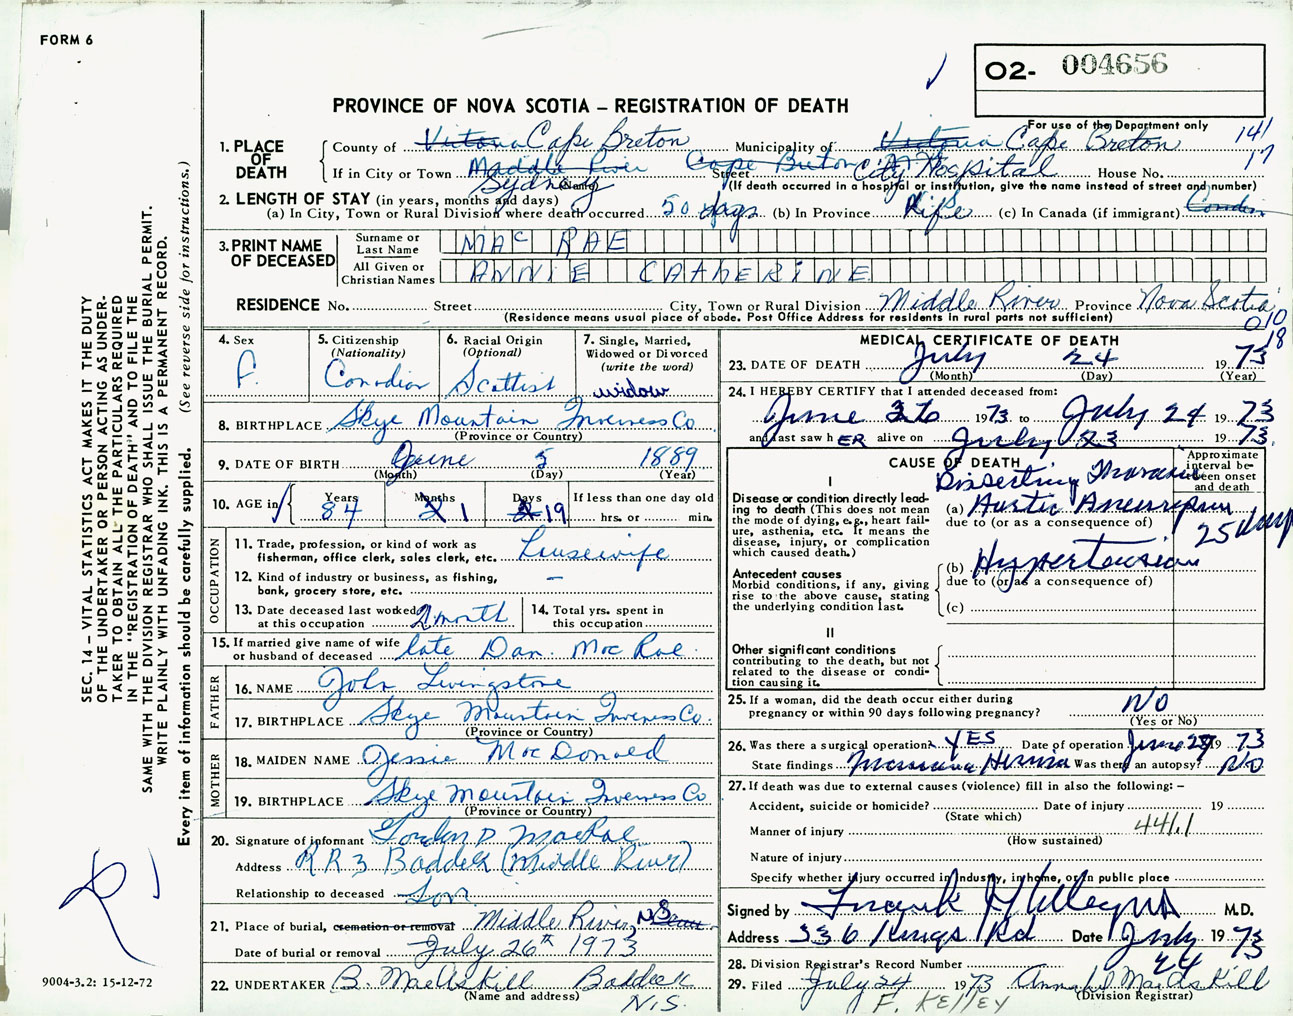 FORM 6
O2- 004656
PROVINCE OF NOVA SCOTIA – REGISTRATION OF DEATH
For use of the Department only
141
17
1. PLACE OF DEATH
County of Victoria Cape Breton Municipality of Victoria Cape Breton
If in City or Town Middle River Sydney (Name) Cape Breton Street City Hospital House No.
(If death occurred in a hospital or institution, give the name instead of street and number)
2. LENGTH OF STAY (in years, months and days)
(a) In City, Town or Rural Division where death occurred 50 days (b) In Province Life (c) In Canada (if immigrant)
3. PRINT NAME OF DECEASED
Surname or Last Name MAC RAE
All Given or Christian Names ANNIE CATHERINE
RESIDENCE No. Street City, Town or Rural Division Middle River Province Nova Scotia
(Residence means usual place of abode. Post Office Address for residents in rural parts not sufficient)
010
18
4. Sex F.
5. Citizenship (Nationality) Canadian
6. Racial Origin (Optional) Scottish
7. Single, Married, Widowed or Divorced (write the word) widow
8. BIRTHPLACE Skye Mountain Inverness Co
(Province or Country)
9. DATE OF BIRTH June 5 1889
(Month) (Day) (Year)
10. AGE in Years 84 Months 2 1 Days 19 If less than one day old hrs. or min.
OCCUPATION
11. Trade, profession, or kind of work as fisherman, office clerk, sales clerk, etc. Housewife
12. Kind of industry or business, as fishing, bank, grocery store, etc. –
13. Date deceased last worked at this occupation 2 month
14. Total yrs. spent in this occupation
15. If married give name of wife or husband of deceased late Dan. MacRae
FATHER
16. NAME John Livingstone
17. BIRTHPLACE Skye Mountain Inverness Co.
(Province or Country)
MOTHER
18. MAIDEN NAME Jessie MacDonald
19. BIRTHPLACE Skye Mountain Inverness Co
(Province or Country)
20. Signature of informant Gordon D MacRae
Address R.R.3 Baddeck (Middle River)
Relationship to deceased Son
21. Place of burial, cremation or removal Middle River, NS
Date of burial or removal July 26th 1973
22. UNDERTAKER B. MacAskill Baddeck
(Name and address)
N.S.
MEDICAL CERTIFICATE OF DEATH
23. DATE OF DEATH July 24 19 73
(Month) (Day) (Year)
24. I HEREBY CERTIFY that I attended deceased from:
June 26 1973 to July 24 19 73
and last saw h ER alive on July 23 19 73.
CAUSE OF DEATH
Approximate interval between onset and death
I
Disease or condition directly leading to death (This does not mean the mode of dying, e.g., heart failure, asthenia, etc. It means the disease, injury, or complication which caused death.)
Dissecting Thoracic
(a) Aortic Aneurysm
due to (or as a consequence of)
25 days
Antecedent causes
Morbid conditions, if any, giving rise to the above cause, stating the underlying condition last.
(b) Hypertension
due to (or as a consequence of)
(c)
II
Other significant conditions contributing to the death, but not related to the disease or condition causing it.
25. If a woman, did the death occur either during pregnancy or within 90 days following pregnancy? NO
(Yes or No)
26. Was there a surgical operation? YES Date of operation June 19 73
State findings Hernia Was there an autopsy? NO
27. If death was due to external causes (violence) fill in also the following: –
Accident, suicide or homicide? Date of injury 19
(State which)
Manner of injury 4411
(How sustained)
Nature of injury
Specify whether injury occurred in industry, in home, or in public place
Signed by Frank M.D.
Address 336 Kings Rd Date July 24 19 73
28. Division Registrar's Record Number
29. Filed July 24 1973 Annabel MacAskill
(Division Registrar)
F. KELLEY
SEC. 14 – VITAL STATISTICS ACT MAKES IT THE DUTY
OF THE UNDERTAKER OR PERSON ACTING AS UNDER-
TAKER TO OBTAIN ALL THE PARTICULARS REQUIRED
IN THE "REGISTRATION OF DEATH" AND TO FILE THE
SAME WITH THE DIVISION REGISTRAR WHO SHALL ISSUE THE BURIAL PERMIT.
WRITE PLAINLY WITH UNFADING INK. THIS IS A PERMANENT RECORD.
Every item of information should be carefully supplied. (See reverse side for instructions.)
9004-3.2: 15-12-72